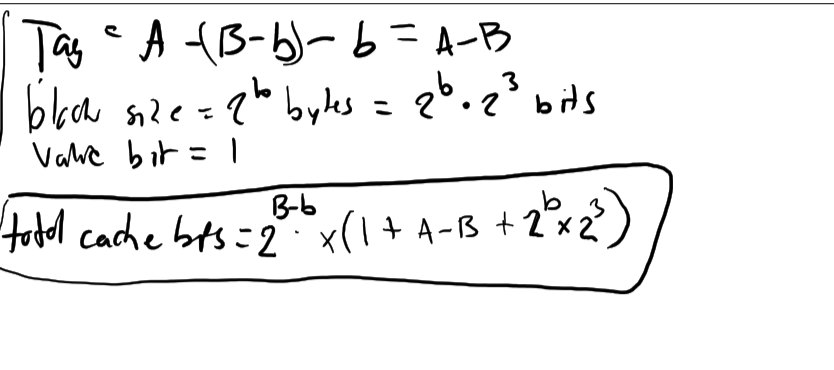 Tag = A - (B-b) - b = A-B
block size = 2^b bytes = 2^b · 2^3 bits
Value bit = 1
total cache bits = 2^(B-b) · x (1 + A-B + 2^b x 2^3)